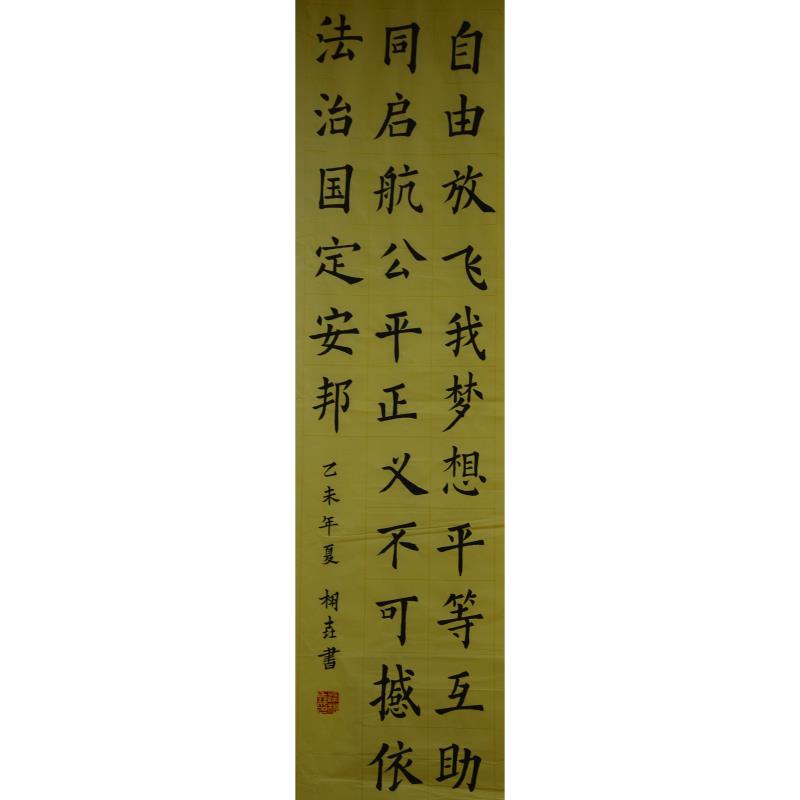 自由放飞我梦想平等互助
同启航公平正义不可撼依
法治国定安邦
乙未年夏 栩垚書